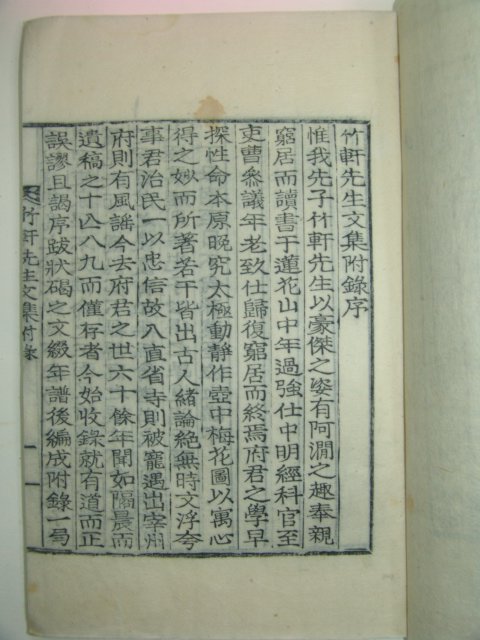 竹軒先生文集附錄序
惟我先子竹軒先生以豪傑之姿有阿澗之趣奉親
窮居而讀書于蓮花山中年過強仕中明經科官至
吏曹參議年老致仕歸復窮居而終焉府君之學早
探性命本原晚究太極動靜作壺中梅花圖以寓心
得之妙而所著若干皆出古人緒論絕無時文浮夸
事君治民一以忠信故入直省寺則被寵遇出宰州
府則有風謠今去府君之世六十餘年聞如隔晨而
遺稿之十亾八九而僅存者今始收錄就有道而正
誤謬且謁序跋狀碣之文綴年譜後編成附錄一局
竹軒先生文集付錄 一